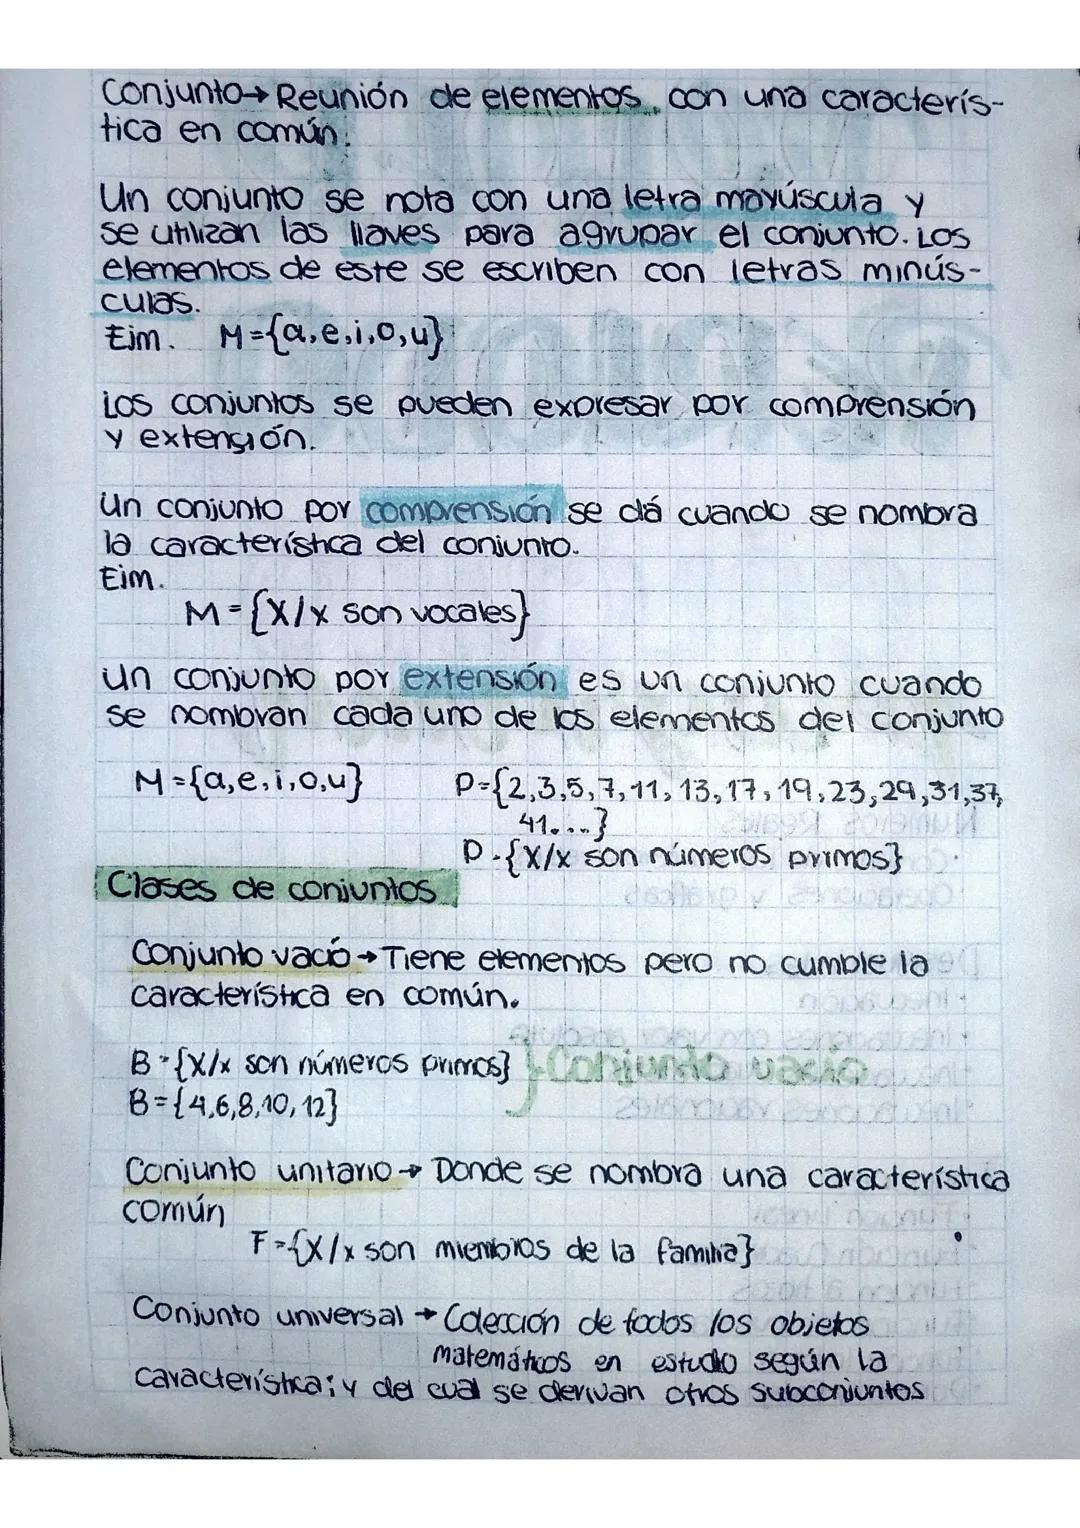 Conjunto→ Reunión de elementos, con una caracterís-
tica en común.
Un conjunto se nota con una letra mayúscula y
se utilizan las llaves para agrupar el conjunto. Los
elementos de este se escriben con letras minús-
culas.
Ejm. M={a,e,i,o,u}
Los conjuntos se pueden expresar por comprensión
y extensión.
Un conjunto por comprensión se dá cuando se nombra
la característica del conjunto.
Ejm.
M={X/x son vocales}
Un conjunto por extensión es un conjunto cuando
se nombran cada uno de los elementos del conjunto
M={a,e,i,o,u} P={2,3,5,7,11,13,17,19,23,29,31,37,
41...}
P={X/x son números primos}
Clases de conjuntos
Conjunto vacío→Tiene elementos pero no cumple la
característica en común.
B={X/x son números primos} } Conjunto vacío
B={4,6,8,10,12}
Conjunto unitario→ Donde se nombra una característica
común
F={X/x son miembros de la familia}
Conjunto universal → Colección de todos los objetos
matemáticos en estudio según la
característica; y del cual se derivan otros subconjuntos